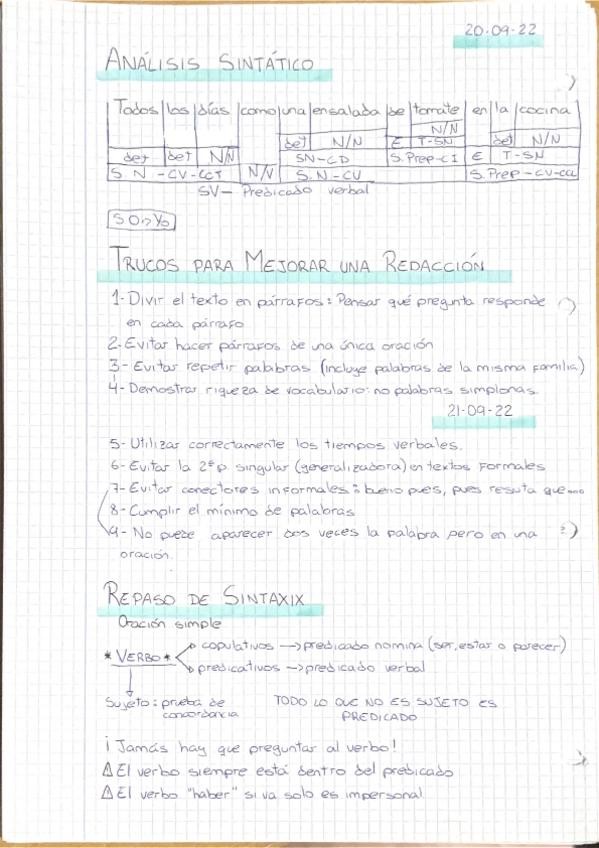 20-09-22
ANÁLISIS SINTÁTICO
Todos los días como una ensalada de tomate en la cocina
N/N
det N/N E T-SN det N/N
det det N/N SN-CD S.Prep-CI E T-SN
S N -CV-CCT N/V S.N-CV S.Prep-CV-CCL
SV- Predicado verbal
SO:Yo
TRUCOS PARA MEJORAR UNA REDACCIÓN
1- Divir el texto en párrafos: Pensar qué pregunta responde
en cada párrafo
2- Evitar hacer párrafos de una única oración
3- Evitar repetir palabras (incluye palabras de la misma familia)
4- Demostrar riqueza de vocabulario: no palabras simplonas.
21-09-22
5- Utilizar correctamente los tiempos verbales.
6- Evitar la 2ªp singular (generalizadora) en textos formales
7- Evitar conectores informales: bueno pues, pues resuta que...
8- Cumplir el mínimo de palabras
9- No puede aparecer dos veces la palabra pero en una
oración.
REPASO DE SINTAXIX
Oración simple
copulativos → predicado nomina (ser, estar o parecer)
* VERBO *
predicativos → predicado verbal
Sujeto: prueba de TODO LO QUE NO ES SUJETO ES
concordancia PREDICADO
¡Jamás hay que preguntar al verbo!
⚠ El verbo siempre está dentro del predicado
⚠ El verbo "haber" si va solo es impersonal